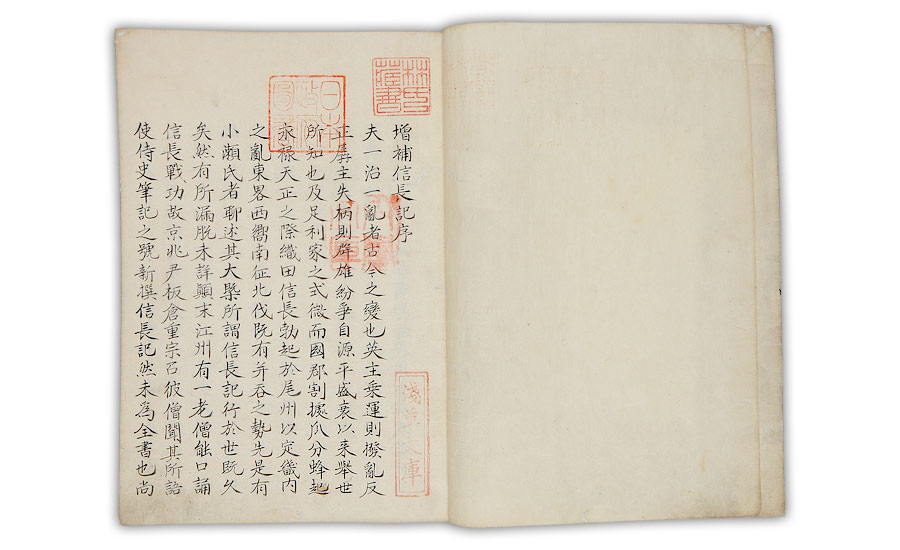 増補信長記序
夫一治一亂者古今之變也英主乗運則撥亂反
正孱主失柄則群雄紛爭自源平盛衰以来舉世
所知也及足利家之式微而國郡割據瓜分蜂起
永禄天正之際織田信長勃起於尾州以定畿内
之亂東畧西嚮南征北伐既有并呑之勢先是有
小瀬氏者聊述其大槩所謂信長記行於世既久
矣然有所漏脱未詳顛末江州有一老僧能口誦
信長戰功故京兆尹板倉重宗召彼僧聞其所語
使侍史筆記之號新撰信長記然未為全書也尚
林氏
蔵書
日本
政府
圖書
淺草文庫